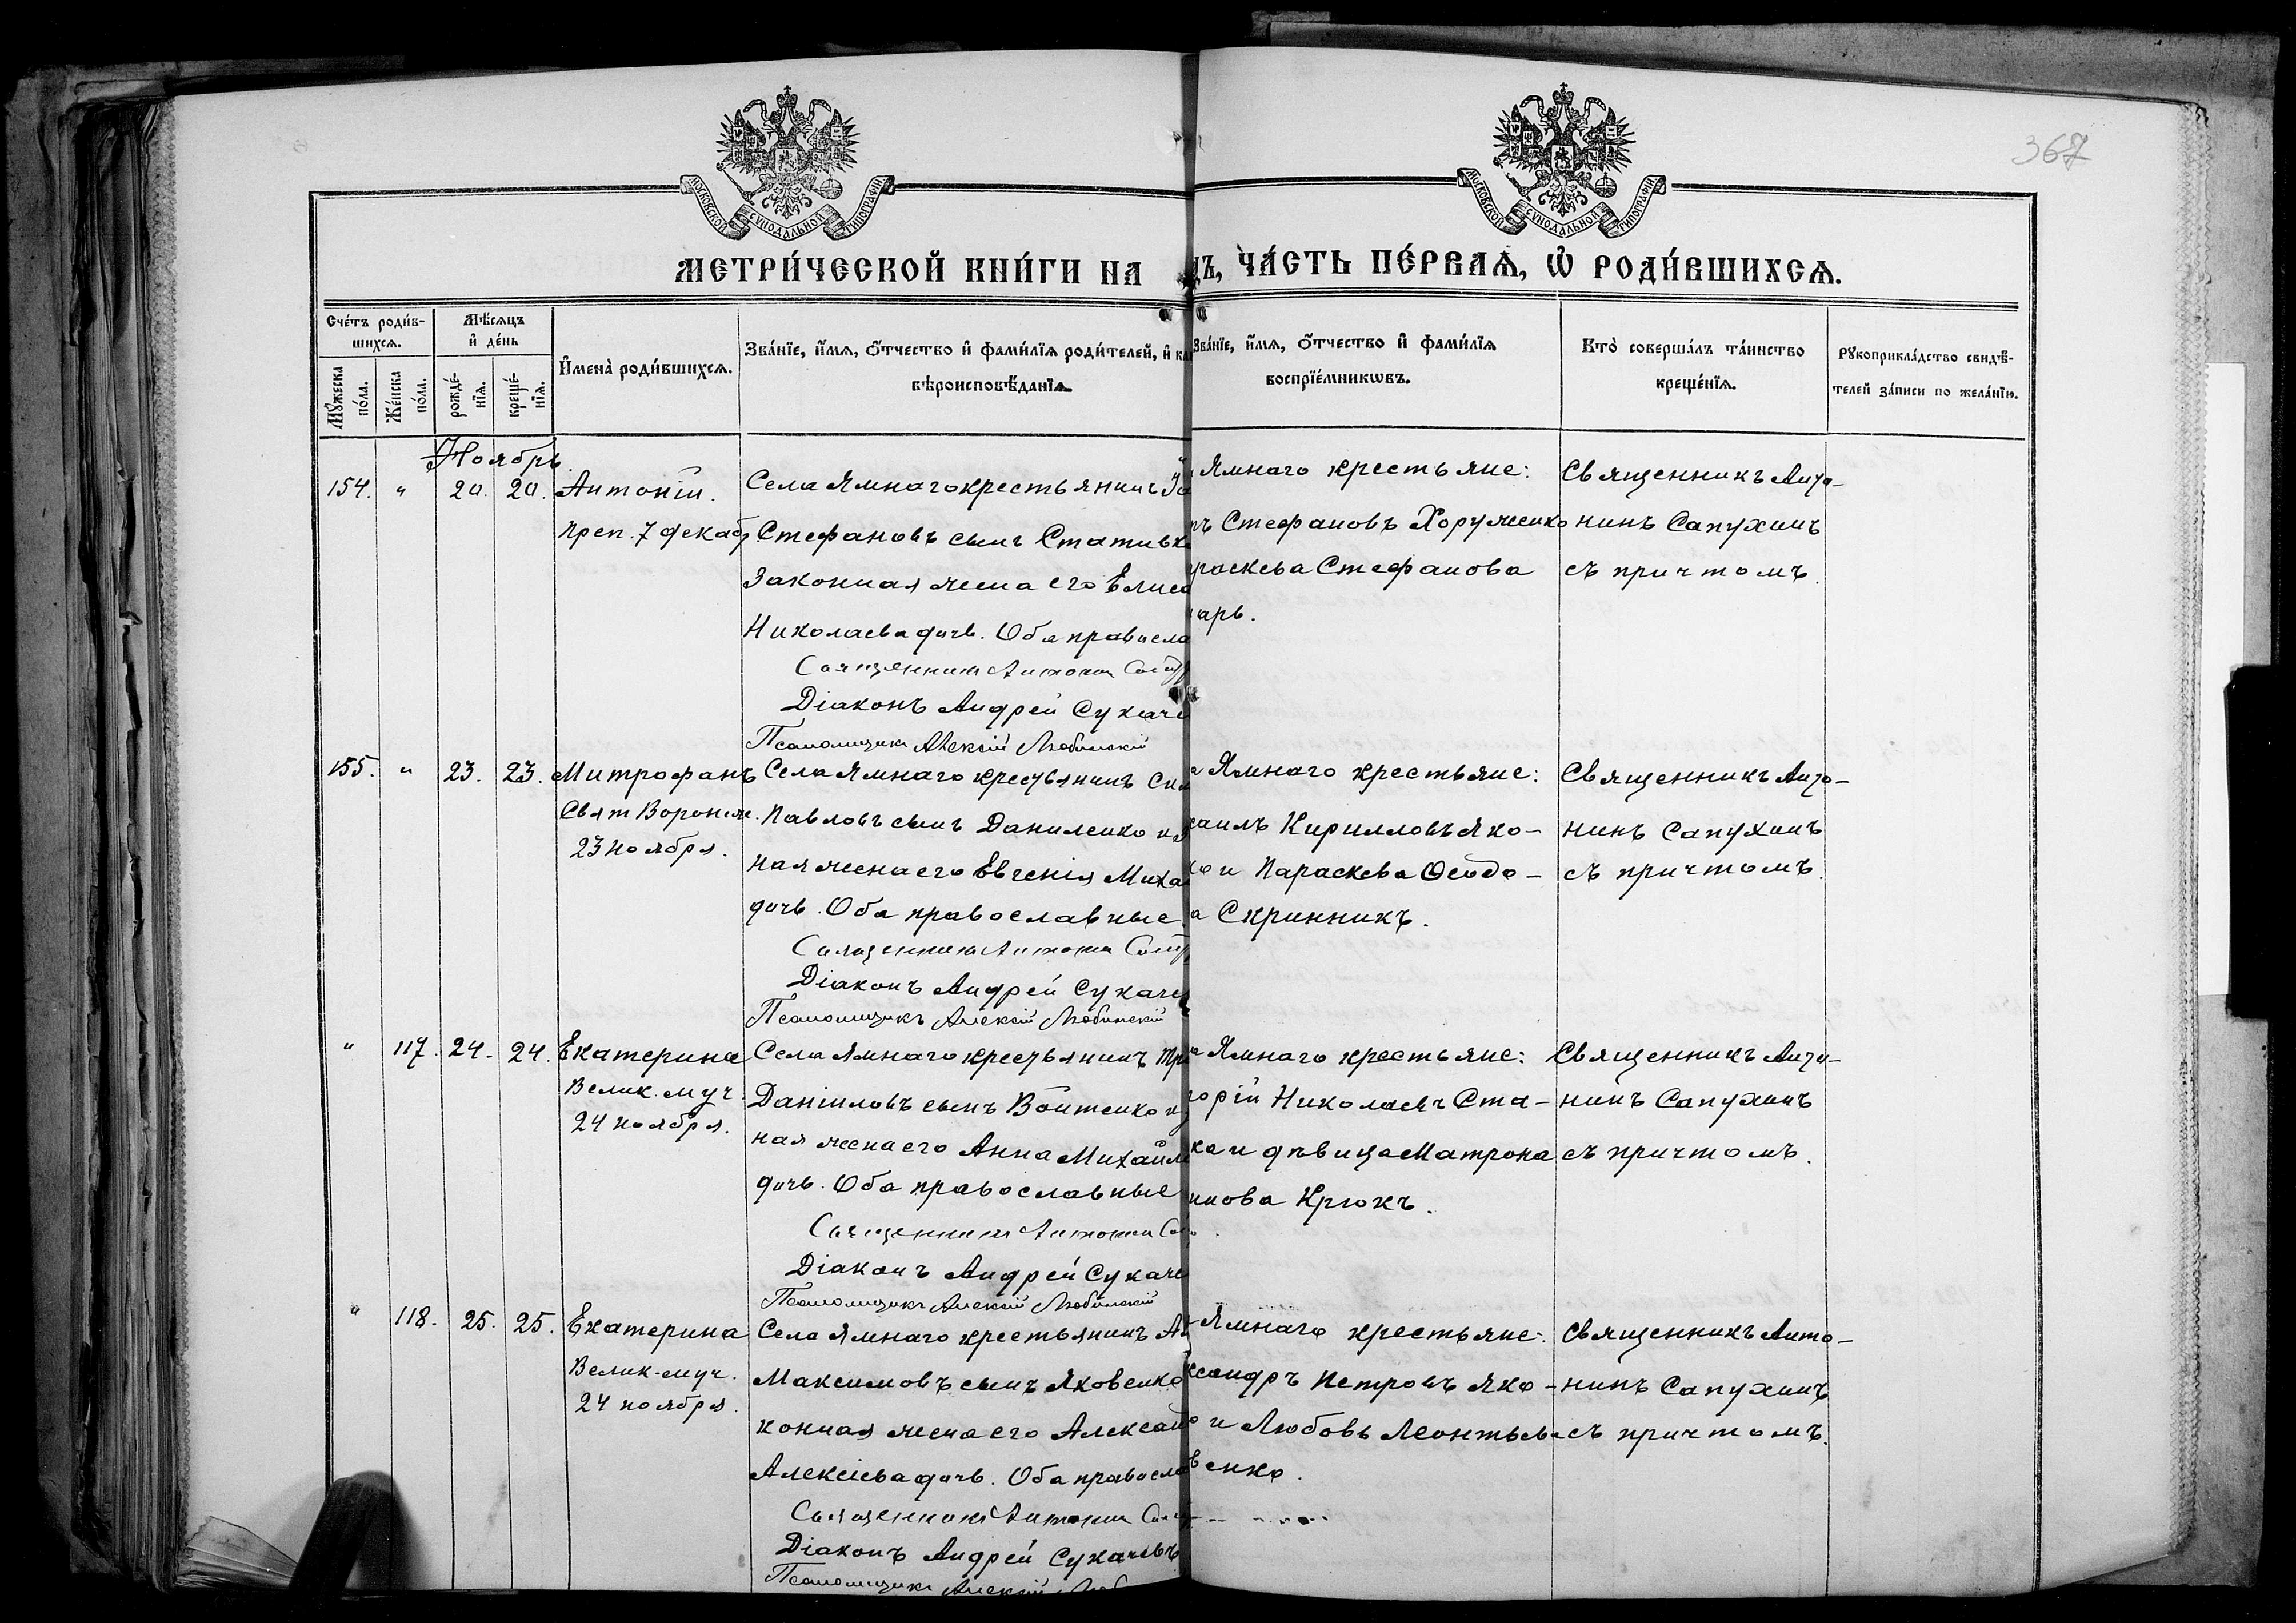 367
МОСКОВСКОЙ СѴНОДАЛЬНОЙ ТИПОГРАФІИ
МОСКОВСКОЙ СѴНОДАЛЬНОЙ ТИПОГРАФІИ
МЕТРИ́ЧЕСКОЙ КНИ́ГИ НА
ДЪ, ЧА́СТЬ ПЕ́РВАѦ, Ѡ҆ РОДИ́ВШИХСѦ.
Сче́тъ роди́в-
шихсѧ.
Мѣ́сѧцъ
и҆ де́нь
Мꙋ́жеска по́ла.
Же́нска по́ла.
рожде́-нїѧ.
креще́-нїѧ.
И҆мена̀ роди́вшихсѧ.
Зва́нїе, и҆́мѧ, ѻ҆́тчество и҆ фами́лїѧ роди́телей, и҆ ка
вѣроисповѣ́данїѧ.
Зва́нїе, и҆́мѧ, ѻ҆́тчество и҆ фами́лїѧ
воспрїе́мникѡвъ.
Кто̀ соверша́лъ та́инство
креще́нїѧ.
Рꙋкоприкла́дство свидѣ́-
телей за́писи по жела́нїю.
Ноябрь.
154. " 20. 20. Антоній.
Преп. 7 декаб
Села Ямнаго крестьянинъ
Стефановъ сынъ Стативк
Законная жена его Елиса
Николаева дочь. Оба правосла
Священникъ Антонин
Діаконъ Андрей Сукаче
Псаломщикъ Алексій Любимскій
Ямнаго крестьяне:
ръ Стефановъ Хоруженко
раскева Стефанова
нарь.
Священникъ Анто-
нинъ Сапухинъ
съ причтомъ.
155. " 23. 23. Митрофанъ
Свят Воронеж.
23 ноября.
Села Ямнаго крестьянинъ
Павловъ сынъ Даниленко и з
ная жена его Евгенія Миха
дочь. Оба православные
Священникъ Антонин
Діаконъ Андрей Сукаче
Псаломщикъ Алексій Любимскій
а Ямнаго крестьяне:
хаилъ Кирилловъ Яко-
ко и Параскева Ѳеодо-
а Скринникъ.
Священникъ Анто-
нинъ Сапухинъ
съ причтомъ.
" 117. 24. 24. Екатерина
Велик. муч.
24 ноября.
Села Ямнаго крестьянинъ
Даніиловъ сынъ Войтенко и з
ная жена его Анна Михаило
дочь. Оба православные
Священникъ Антонин
Діаконъ Андрей Сукаче
Псаломщикъ Алексій Любимскій
а Ямнаго крестьяне:
горій Николаевъ Ста-
ка и дѣвица Матрона
нова Крюкъ.
Священникъ Анто-
нинъ Сапухинъ
съ причтомъ.
" 118. 25. 25. Екатерина
Велик-муч.
24 ноября.
Села Ямнаго крестьянинъ
Максимовъ сынъ Яковенко
конная жена его Александ
Алексіева дочь. Оба правосла
Священникъ Антонин
Діаконъ Андрей Сукачевъ
Псаломщикъ Алексій Люб
Ямнаго крестьяне:
ксандръ Петровъ Яко-
о и Любовь Леонтьев
венко.
Священникъ Анто-
нинъ Сапухинъ
съ причтомъ.